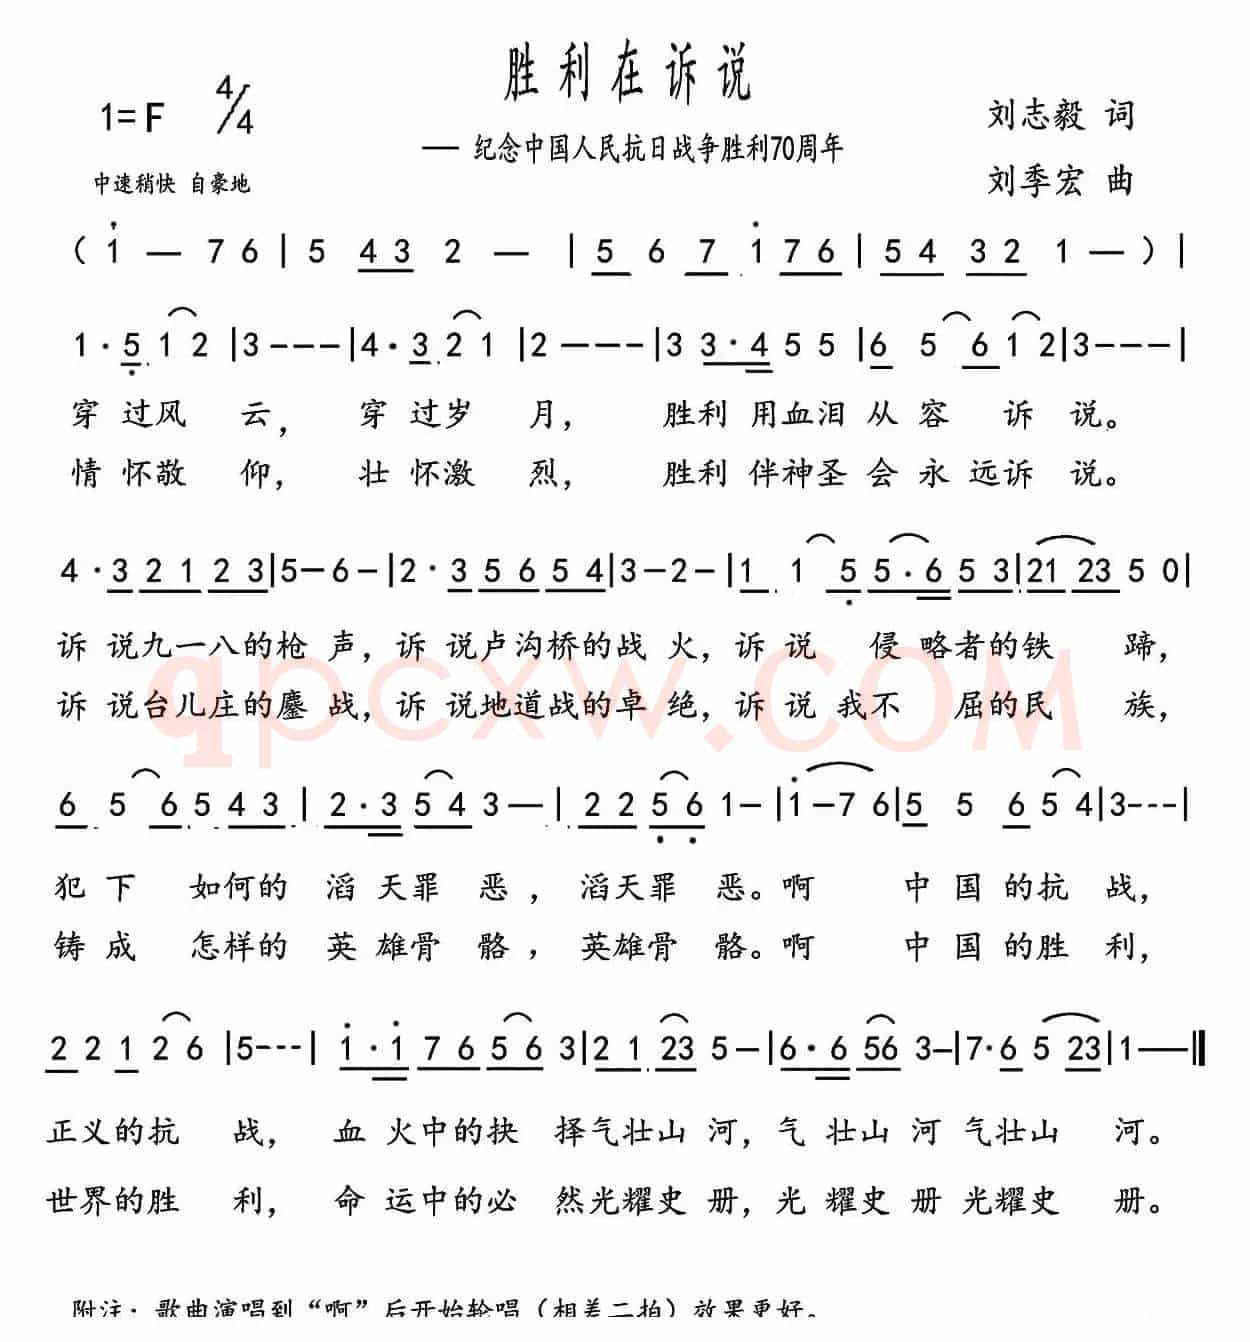 胜利在诉说
1=F 4/4
—— 纪念中国人民抗日战争胜利70周年
刘志毅 词
中速稍快 自豪地
刘季宏 曲
( 1 — 7 6 | 5 4 3 2 — | 5 6 7 1 7 6 | 5 4 3 2 1 — ) |
1 · 5 1 2 | 3 - - - | 4 · 3 2 1 | 2 - - - | 3 3 · 4 5 5 | 6 5 6 1 2 | 3 - - - |
穿 过风 云， 穿 过岁 月， 胜利 用血泪 从 容 诉 说。
情 怀敬 仰， 壮 怀激 烈， 胜利 伴神圣 会 永 远诉 说。
4 · 3 2 1 2 3 | 5 – 6 – | 2 · 3 5 6 5 4 | 3 – 2 – | 1 1 5 5 · 6 5 3 | 21 23 5 0 |
诉 说九一八的枪 声，诉 说卢沟桥的战 火，诉 说 侵 略者的铁 蹄，
诉 说台儿庄的鏖 战，诉 说地道战的卓 绝，诉 说 我不 屈的民 族，
qpcxw.COM
6 5 6 5 4 3 | 2 · 3 5 4 3 — | 2 2 5 6 1 – | 1 – 7 6 | 5 5 6 5 4 | 3 - - - |
犯 下 如何的 滔 天罪 恶， 滔天罪 恶。啊 中 国 的抗 战，
铸 成 怎样的 英 雄骨 骼， 英雄骨 骼。啊 中 国 的胜 利，
2 2 1 2 6 | 5 - - - | 1 · 1 7 6 5 6 3 | 2 1 23 5 – | 6 · 6 56 3 – | 7 · 6 5 23 | 1 —— ‖
正义的抗 战， 血 火中的抉 择气壮山 河，气 壮山 河 气壮山 河。
世界的胜 利， 命 运中的必 然光耀史 册，光 耀史 册 光耀史 册。
附注：歌曲演唱到“啊”后开始轮唱（相差二拍）效果更好。